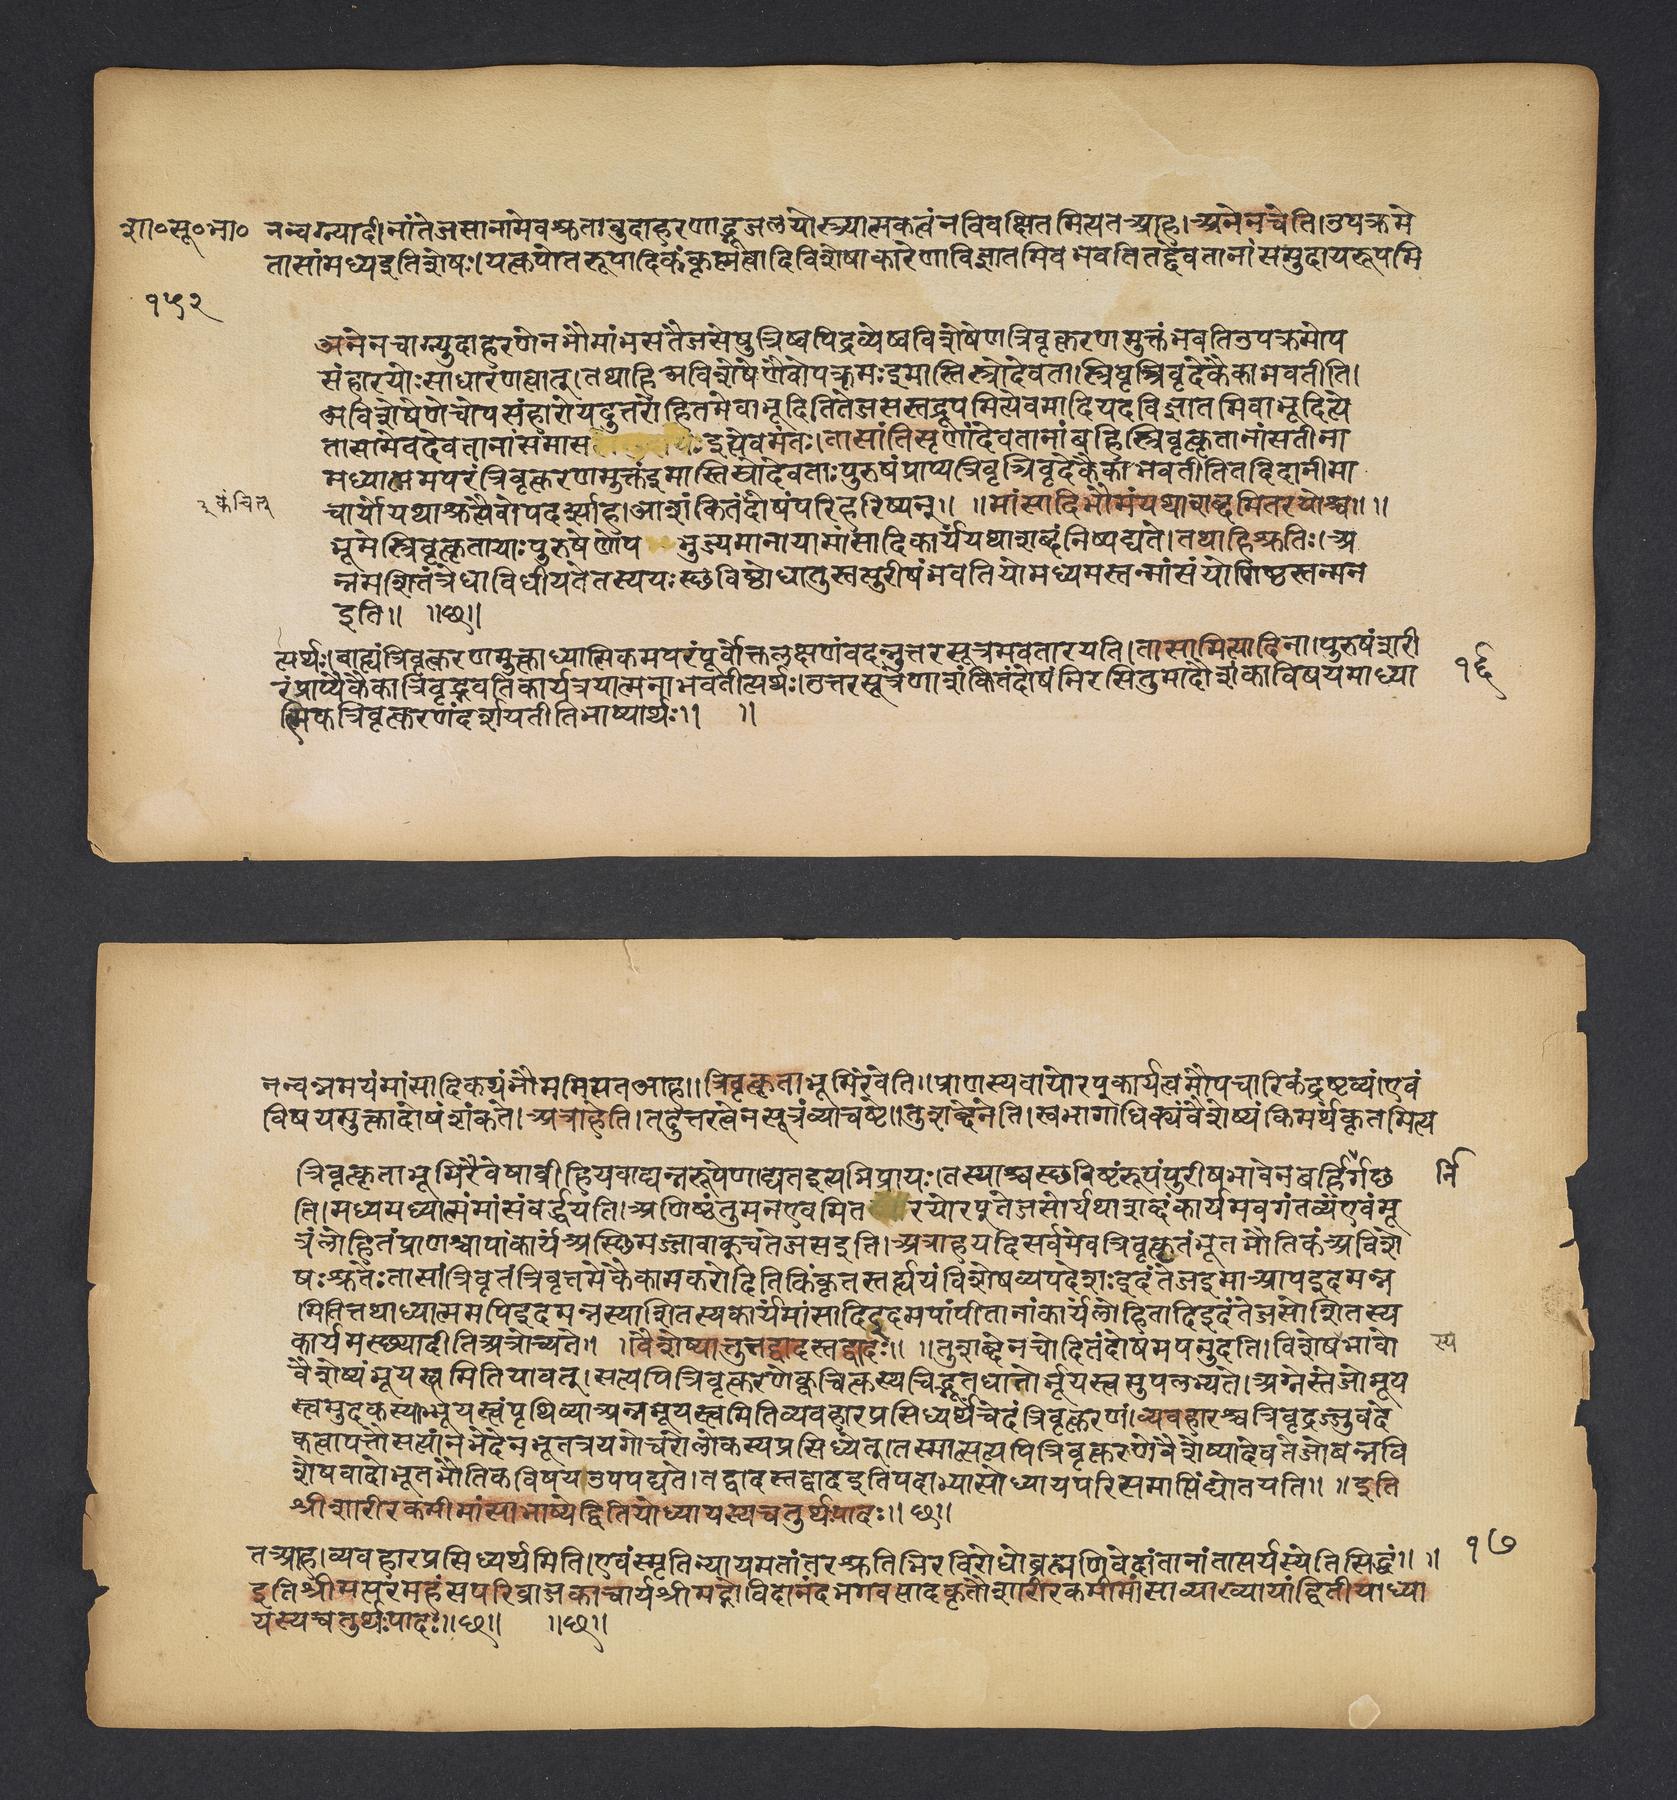 शा०सू०भा० नन्वग्न्यादीनांतेजसानामेवश्रुतावुदाहरणाद्भूजलयोस्त्र्यात्मकत्वंनविवक्षितमित्यतआह।अनेनचेति।उपक्रमे
तासांमध्यइतिशेषः।यत्कपोतरूपादिकंकृष्णत्वादिविशेषाकारेणाविज्ञातमिवभवतितद्देवतानांसमुदायरूपमि
१५२
अनेनचाग्न्युदाहरणेनभौमांभसतैजसेषुत्रिष्वपिद्रव्येष्वविशेषेणत्रिवृत्करणमुक्तंभवतिउपक्रमोप
संहारयोःसाधारणत्वात्।तथाहिअविशेषेणैवोपक्रमःइमास्तिस्त्रोदेवतास्त्रिवृत्रिवृदेकैकाभवतीति।
अविशेषेणैचोपसंहारोयदुत्तरोहितमेवाभूदितितेजसस्तद्रूपमित्येवमादियदविज्ञातमिवाभूदित्ये
तासामेवदेवतानांसमास यःइत्येवमंतः।तासांतिसृणांदेवतानांबहिस्त्रिवृत्कृतानांसतीना
मध्यात्ममपरंत्रिवृत्करणमुक्तंइमास्तिस्त्रोदेवताःपुरुषंप्राप्यत्रिवृत्रिवृदेकैकाभवतीतितदिदानीमा
चार्योयथाश्रुत्यैवोपदर्शयाह।आशंकितंदोषंपरिहरिष्यन्।। ॥मांसादिभौमंयथाशब्दमितरयोश्च॥ ॥
कंचित्
भूमेस्त्रिवृत्कृतायाःपुरुषेणोप भुज्यमानायामांसादिकार्यंयथाशब्दंनिष्पद्यते।तथाहिश्रुतिः।अ
न्नमशितंत्रेधाविधीयतेतस्ययःस्छविष्ठोधातुस्तत्पुरीषंभवतियोमध्यमस्तन्मांसंयोणिष्ठस्तन्मन
इति॥ ॥छ॥
त्यर्थः।बाह्यंत्रिवृत्करणमुक्ताध्यात्मिकमपरंपूर्वोक्तलक्षणंवदन्नुत्तरसूत्रमवतारयति।तासामित्यादिना।पुरुषंशरी
रंप्राप्यैकैकात्रिवृद्भवतिकार्यत्रयात्मनाभवतीत्यर्थः।उत्तरसूत्रेणाशंकितंदोषंनिरसितुमादौशंकाविषयमाध्या
त्मिकत्रिवृत्करणंदर्शयतीतिभाष्यार्थः॥ ॥
१६
नन्वन्नमयंमांसादिकथंभौममित्यतआह॥त्रिवृत्कृताभूमिरेवेति॥प्राणस्यवायोरप्कार्यत्वमौपचारिकंद्रष्टव्यं।एवं
विषयमुक्तादोषंशंकते।अत्राहेति।तदुत्तरत्वेनसूत्रंव्याचष्टे॥तुशब्देनेति।स्वभागाधिक्यंवैशेष्यंकिमर्थंकृतमित्य
त्रिवृत्कृताभूमिरेवैषाव्रीहियवाद्यन्नरूपेणाद्यतइत्यभिप्रायः।तस्याश्चस्छविष्टंरूपंपुरीषभावेनबहिर्गछ र्नि
ति।मध्यमध्यात्मंमांसंवर्द्धयति।अणिष्ठंतुमनएवमित रयोरप्तेजसोर्यथाशब्दंकार्यमवगंतव्यंएवंमू
त्रंलोहितंप्राणश्चापांकार्यंअस्छिमज्जावाक्चतेजसइति।अत्राहयदिसर्वमेवत्रिवृत्कृतंभूतभौतिकंअविशे
षःश्रुतेःतासांत्रिवृतंत्रिवृतमेकैकामकरोदितिकिंकृतस्तर्ह्ययंविशेषव्यपदेशःइदंतेजइमाआपइदमन्न
मितितथाध्यात्ममपिइदमन्नस्याशितस्यकार्यंमांसादिइदमपांपीतानांकार्यंलोहितादिइदंतेजसोशितस्य
कार्यमस्छ्यादीतिअत्रोच्यते॥ ।वैशेष्यात्तुतद्वादस्तद्वादः॥ ॥तुशब्देनचोदितंदोषमपनुदति।विशेषभावो स्य
वैशेष्यंभूयस्त्वमितियावत्।सत्यपित्रिवृत्करणेक्वचित्कस्यचिद्भूतधातोर्भूयस्त्वमुपलभ्यते।अग्नेस्तेजोभूय
स्त्वमुदकस्याब्भूयस्त्वंपृथिव्याअन्नभूयस्त्वमितिव्यवहारप्रसिध्यर्थंचेदंत्रिवृत्करणं।व्यवहारश्चत्रिवृद्रज्जुवदे
कत्वापत्तौसत्यांनभेदेनभूतत्रयगोचरोलोकस्यप्रसिध्येत्।तस्मात्सत्यपित्रिवृत्करणेवैशेष्यादेवतेजोबन्नवि
शेषवादोभूतभौतिकविषयउपपद्यते।तद्वादस्तद्वादइतिपदाभ्यासोध्यायपरिसमाप्तिंद्योतयति॥ ॥इति
श्रीशारीरकमीमांसाभाष्यद्वितियोध्यायस्यचतुर्थपादः॥छ॥
तआह।व्यवहारप्रसिध्यर्थमिति।एवंस्मृतिन्यायमतांतरश्रुतिभिरविरोधोब्रह्मणिवेदांतानांतात्पर्यस्येतिसिद्धं॥ ॥
१७
इतिश्रीमत्परमहंसपरिव्राजकाचार्यश्रीमद्गोविंदानंदभगवत्पादकृतौशारीरकमीमांसाव्याख्यायांद्वितीयाध्या
यस्यचतुर्थःपादः॥छ॥ ॥छ॥